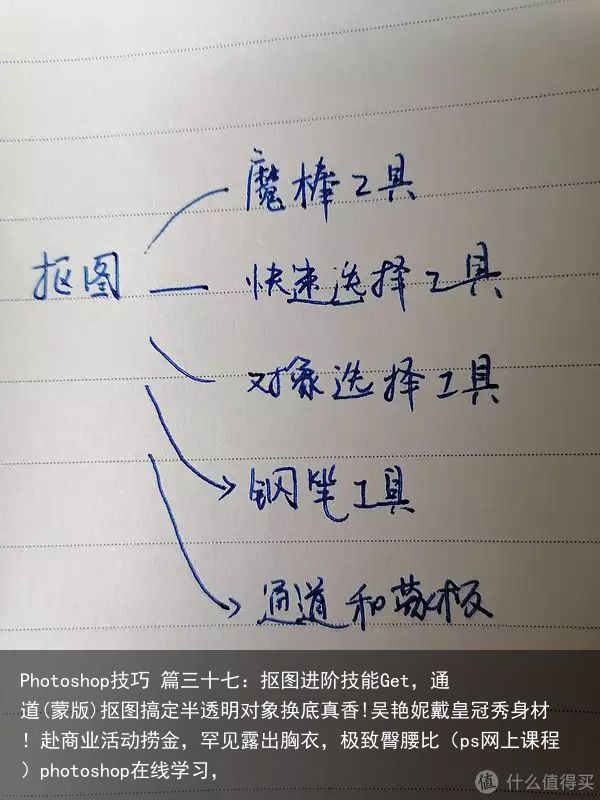 魔棒工具
抠图
快速选择工具
对象选择工具
钢笔工具
通道和蒙板
Photoshop技巧 篇三十七：抠图进阶技能Get，通
道(蒙版)抠图搞定半透明对象换底真香!吴艳妮戴皇冠秀身材
！赴商业活动捞金，罕见露出胸衣，极致臀腰比（ps网上课程
）photoshop在线学习，
值 什么值得买